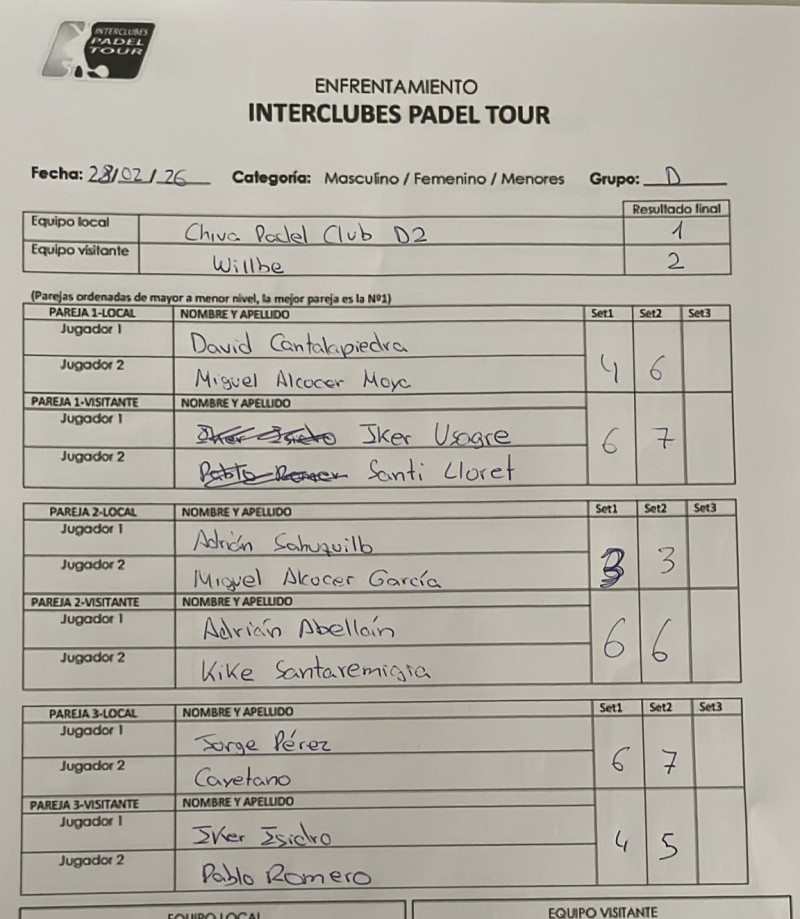 INTERCLUBES
PADEL
TOUR
ENFRENTAMIENTO
INTERCLUBES PADEL TOUR
Fecha: 28/02/26 Categoría: Masculino / Femenino / Menores Grupo: D
Resultado final
Equipo local Chiva Padel Club D2 1
Equipo visitante Willbe 2
(Parejas ordenadas de mayor a menor nivel, la mejor pareja es la Nº1)
PAREJA 1-LOCAL NOMBRE Y APELLIDO Set1 Set2 Set3
Jugador 1 David Cantalapiedra
4 6
Jugador 2 Miguel Alcocer Moya
PAREJA 1-VISITANTE NOMBRE Y APELLIDO
Jugador 1 Iker Isidro Iker Usagre
6 7
Jugador 2 Pablo Romer Santi Lloret
PAREJA 2-LOCAL NOMBRE Y APELLIDO Set1 Set2 Set3
Jugador 1 Adrián Sahuquillo
3 3
Jugador 2 Miguel Alcocer García
PAREJA 2-VISITANTE NOMBRE Y APELLIDO
Jugador 1 Adrián Abellaín
6 6
Jugador 2 Kike Santaremigia
PAREJA 3-LOCAL NOMBRE Y APELLIDO Set1 Set2 Set3
Jugador 1 Jorge Pérez
6 7
Jugador 2 Cayetano
PAREJA 3-VISITANTE NOMBRE Y APELLIDO
Jugador 1 Iker Isidro
4 5
Jugador 2 Pablo Romero
EQUIPO LOCAL EQUIPO VISITANTE